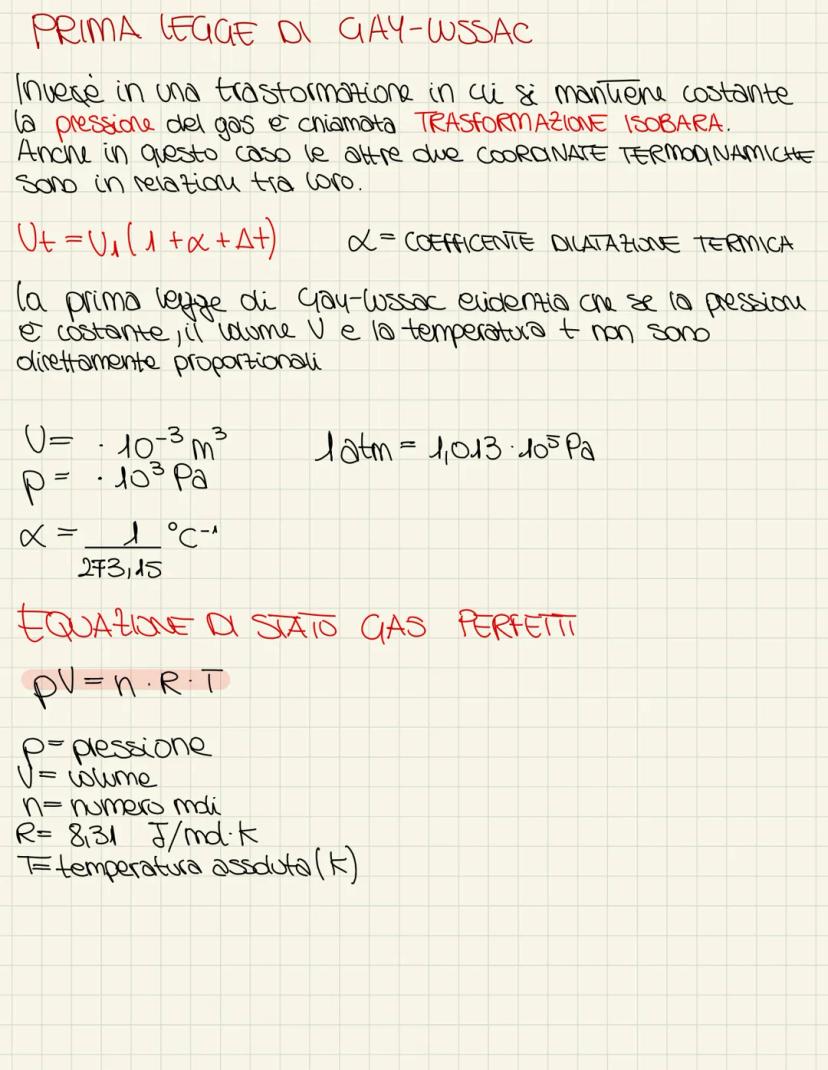 PRIMA LEGGE DI GAY-LUSSAC
Invece in una trasformazione in cui si mantiene costante
la pressione del gas è chiamata TRASFORMAZIONE ISOBARA.
Anche in questo caso le altre due COORDINATE TERMODINAMICHE
sono in relazioni tra loro.
Vt = V₁(1 + α + Δt) α = COEFFICENTE DILATAZIONE TERMICA
La prima legge di Gay-Lussac evidentia che se la pressioni
è costante, il volume V e la temperatura t non sono
direttamente proporzionali
V = · 10⁻³ m³ 1 atm = 1,013 · 10⁵ Pa
p = · 10³ Pa
α = 1 °C⁻¹
273,15
EQUAZIONE DI STATO GAS PERFETTI
pV = n · R · T
p = pressione
V = volume
n = numero moli
R = 8,31 J/mol·k
T = temperatura assoluta (k)